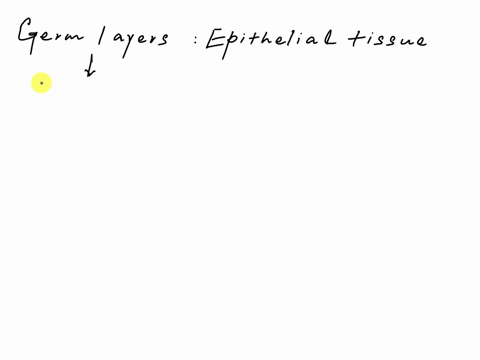 Germ layers : Epithelial tissue
↓